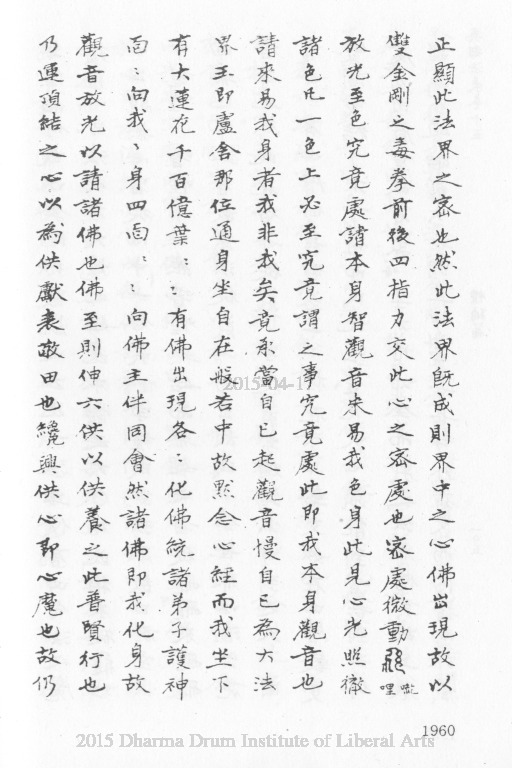 正顯此法界之密也然此法界既成則界中之心佛出現故以
雙金剛之毒拳前後四指力交此心之密處也密處微動𑖮𑖿𑖨𑖱𑖾嚨哩
放光至色究竟處請本身智觀音來易我色身此見心光照徹
諸色凡一色上必至究竟謂之事究竟處此即我本身觀音也
請來易我身者我非我矣竟承當自己起觀音慢自己為大法
界王即盧舍那位通身坐自在般若中故默念心經而我坐下
有大蓮花千百億葉：：有佛出現各：化佛統諸弟子護神
面：向我、身四面：：向佛主伴同會然諸佛即我化身故
觀音放光以請諸佛也佛至則伸六供以供養之此普賢行也
乃運頂結之心以為供獻表敬田也纔興供心即心魔也故仍
2015-04-17
1960
2015 Dharma Drum Institute of Liberal Arts